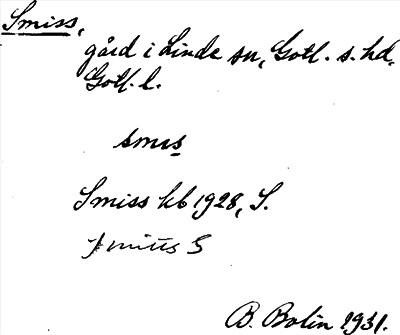 Smiss,
gård i Linde sn, Gotl. s. hd,
Gotl. l.
smis
Smiss kb 1928, S.
B. Bolin 1931.